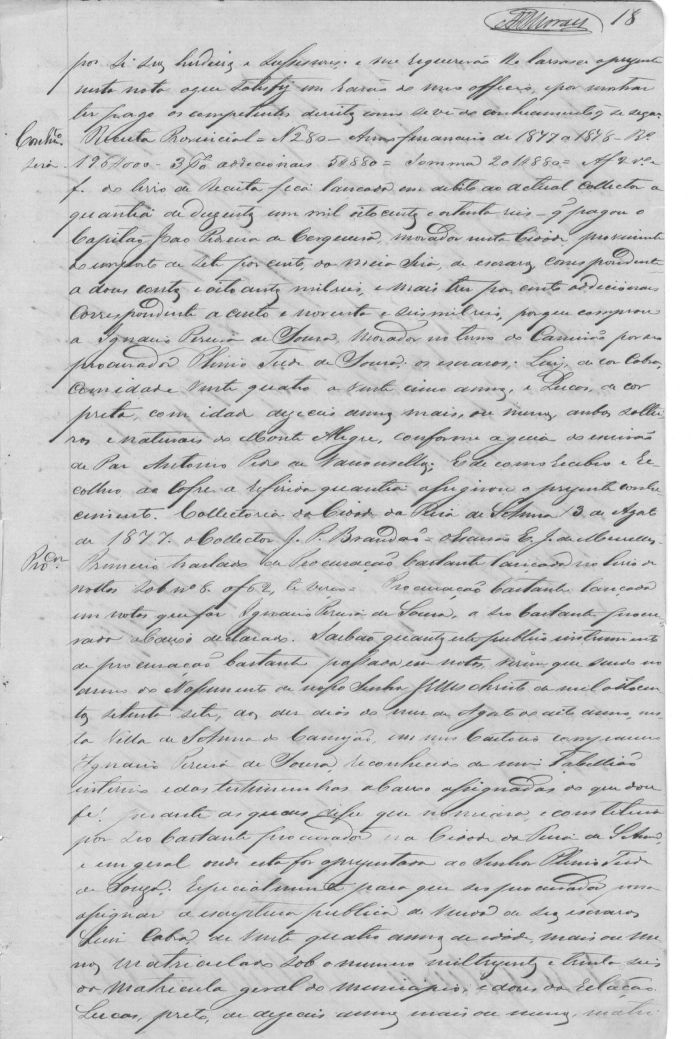 18
por si seus herdeiros e sussessores; e me requererão lhe lavrasse o presente
nesta nota o que satisfiz em rasão do meu officio, e por mostrar
ter pago os competentes direitos como se vê do conhecimento q̃ se segue
Conhe.
Receita Provincial = N. 280 - Anno financeiro de 1877 a 1878 - Rs.
196$000 - 3 p% addicionais 5$880 = Somma 201$880 = Af 2 v. e
f. do livro de Receita fica lancada em debito ao actual collector a
quantia de duzentos um mil oitocentos e oitenta reis - q̃ pagou o
Capitão João Pereira de Cerqueira, morador nesta Cidade, proveniente
do imposto de sete por cento, da meia Siza, de escravos correspondente
a dous contos e oitocentos mil reis, e mais tres por cento addicionais
correspondente a cento e noventa e seis mil reis, por que comprou
a Ignacio Pereira de Souza, morador no termo do Camisão por seu
procurador Plinio Tude de Souza; os escravos; Luiz, de cor Cabra,
com idade vinte quatro a vinte cinco annos, e Lucas, de cor
preta, com idade dezeseis annos mais, ou menos, ambos soltei-
ros e naturais do Monte Alegre, conforme a guia do escrivão
de Paz Antonio Pires de Vasconsellos; E de como recebeo e re-
colheo ao Cofre a referida quantia assignou o presente conhe-
cimento. Collectoria da Cidade da Feira de St. Anna 13 de Agosto
de 1877. o Collector J. P. Brandão - o Escrivão E. J. de Meirelles.
Procor.
Primeiro traslado de Procuração bastante lancada no livro de
nottas sob nº 8. af 62, te verso = Procuração bastante lancada
em notas que faz Ignacio Pereira de Souza, a seo bastante procu-
rador abaixo declarado. Saibão quantos este publico instrumento
de procuração bastante passada em notas, virem que sendo no
anno do Nassimento de nosso Senhor Jesus christo de mil oitocen-
tos setenta sete, aos dez dias do mez de Agosto do dito anno, nes-
ta Villa de St. Anna do Camizão, em meu Cartorio compareceo
Ignacio Pereira de Souza, reconhecido de mim Tabellião
interino e das testimunhas abaixo assignadas do que dou
fé! perante as quaes disse que nomeiava, e constituia
por seo bastante procurador na Cidade da Feira de St. Anna,
e em geral onde esta for apresentada ao Senhor Plinio Tude
de Souza; Especialmente para que seo procurador possa
assignar a escriptura publica de venda de seus escravos
Luiz Cabra, de vinte quatro annos de idade, mais ou me-
nos matriculado sob o numero mil trezentos e trinta seis
da matricula geral do municipio, e dous da relação.
Lucas, preto, de dezeseis annos mais ou menos, matri-